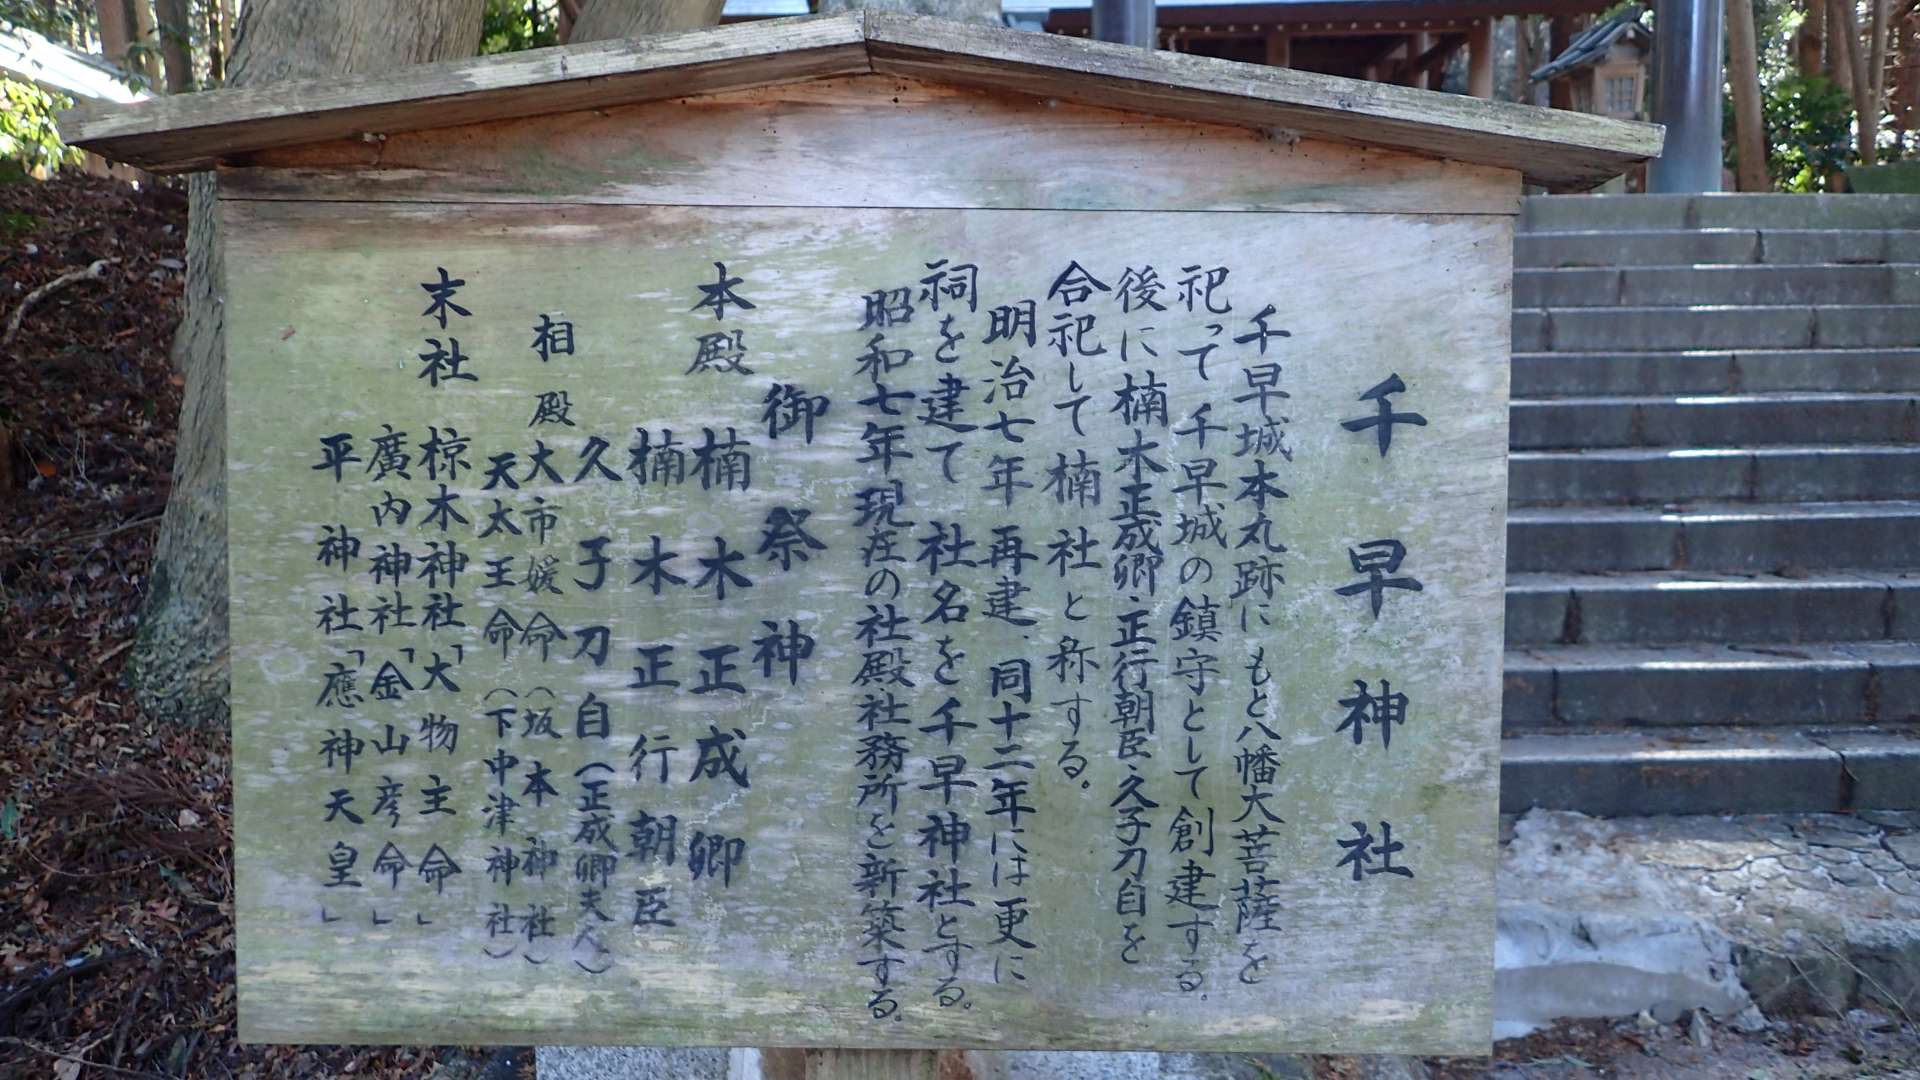 千早神社
千早城本丸跡にもと八幡大菩薩を
祀って千早城の鎮守として創建する。
後に楠木正成卿、正行朝臣、久子刀自を
合祀して楠社と称する。
明治七年再建、同十二年には更に
祠を建て社名を千早神社とする。
昭和七年現在の社殿、社務所を新築する。
御祭神
本殿 楠木正成卿
楠木正行朝臣
久子刀自(正成卿夫人)
相殿 大市媛命(坂本神社)
天太王命(下中津神社)
末社 椋木神社「大物主命」
廣内神社「金山彦命」
平神社「應神天皇」